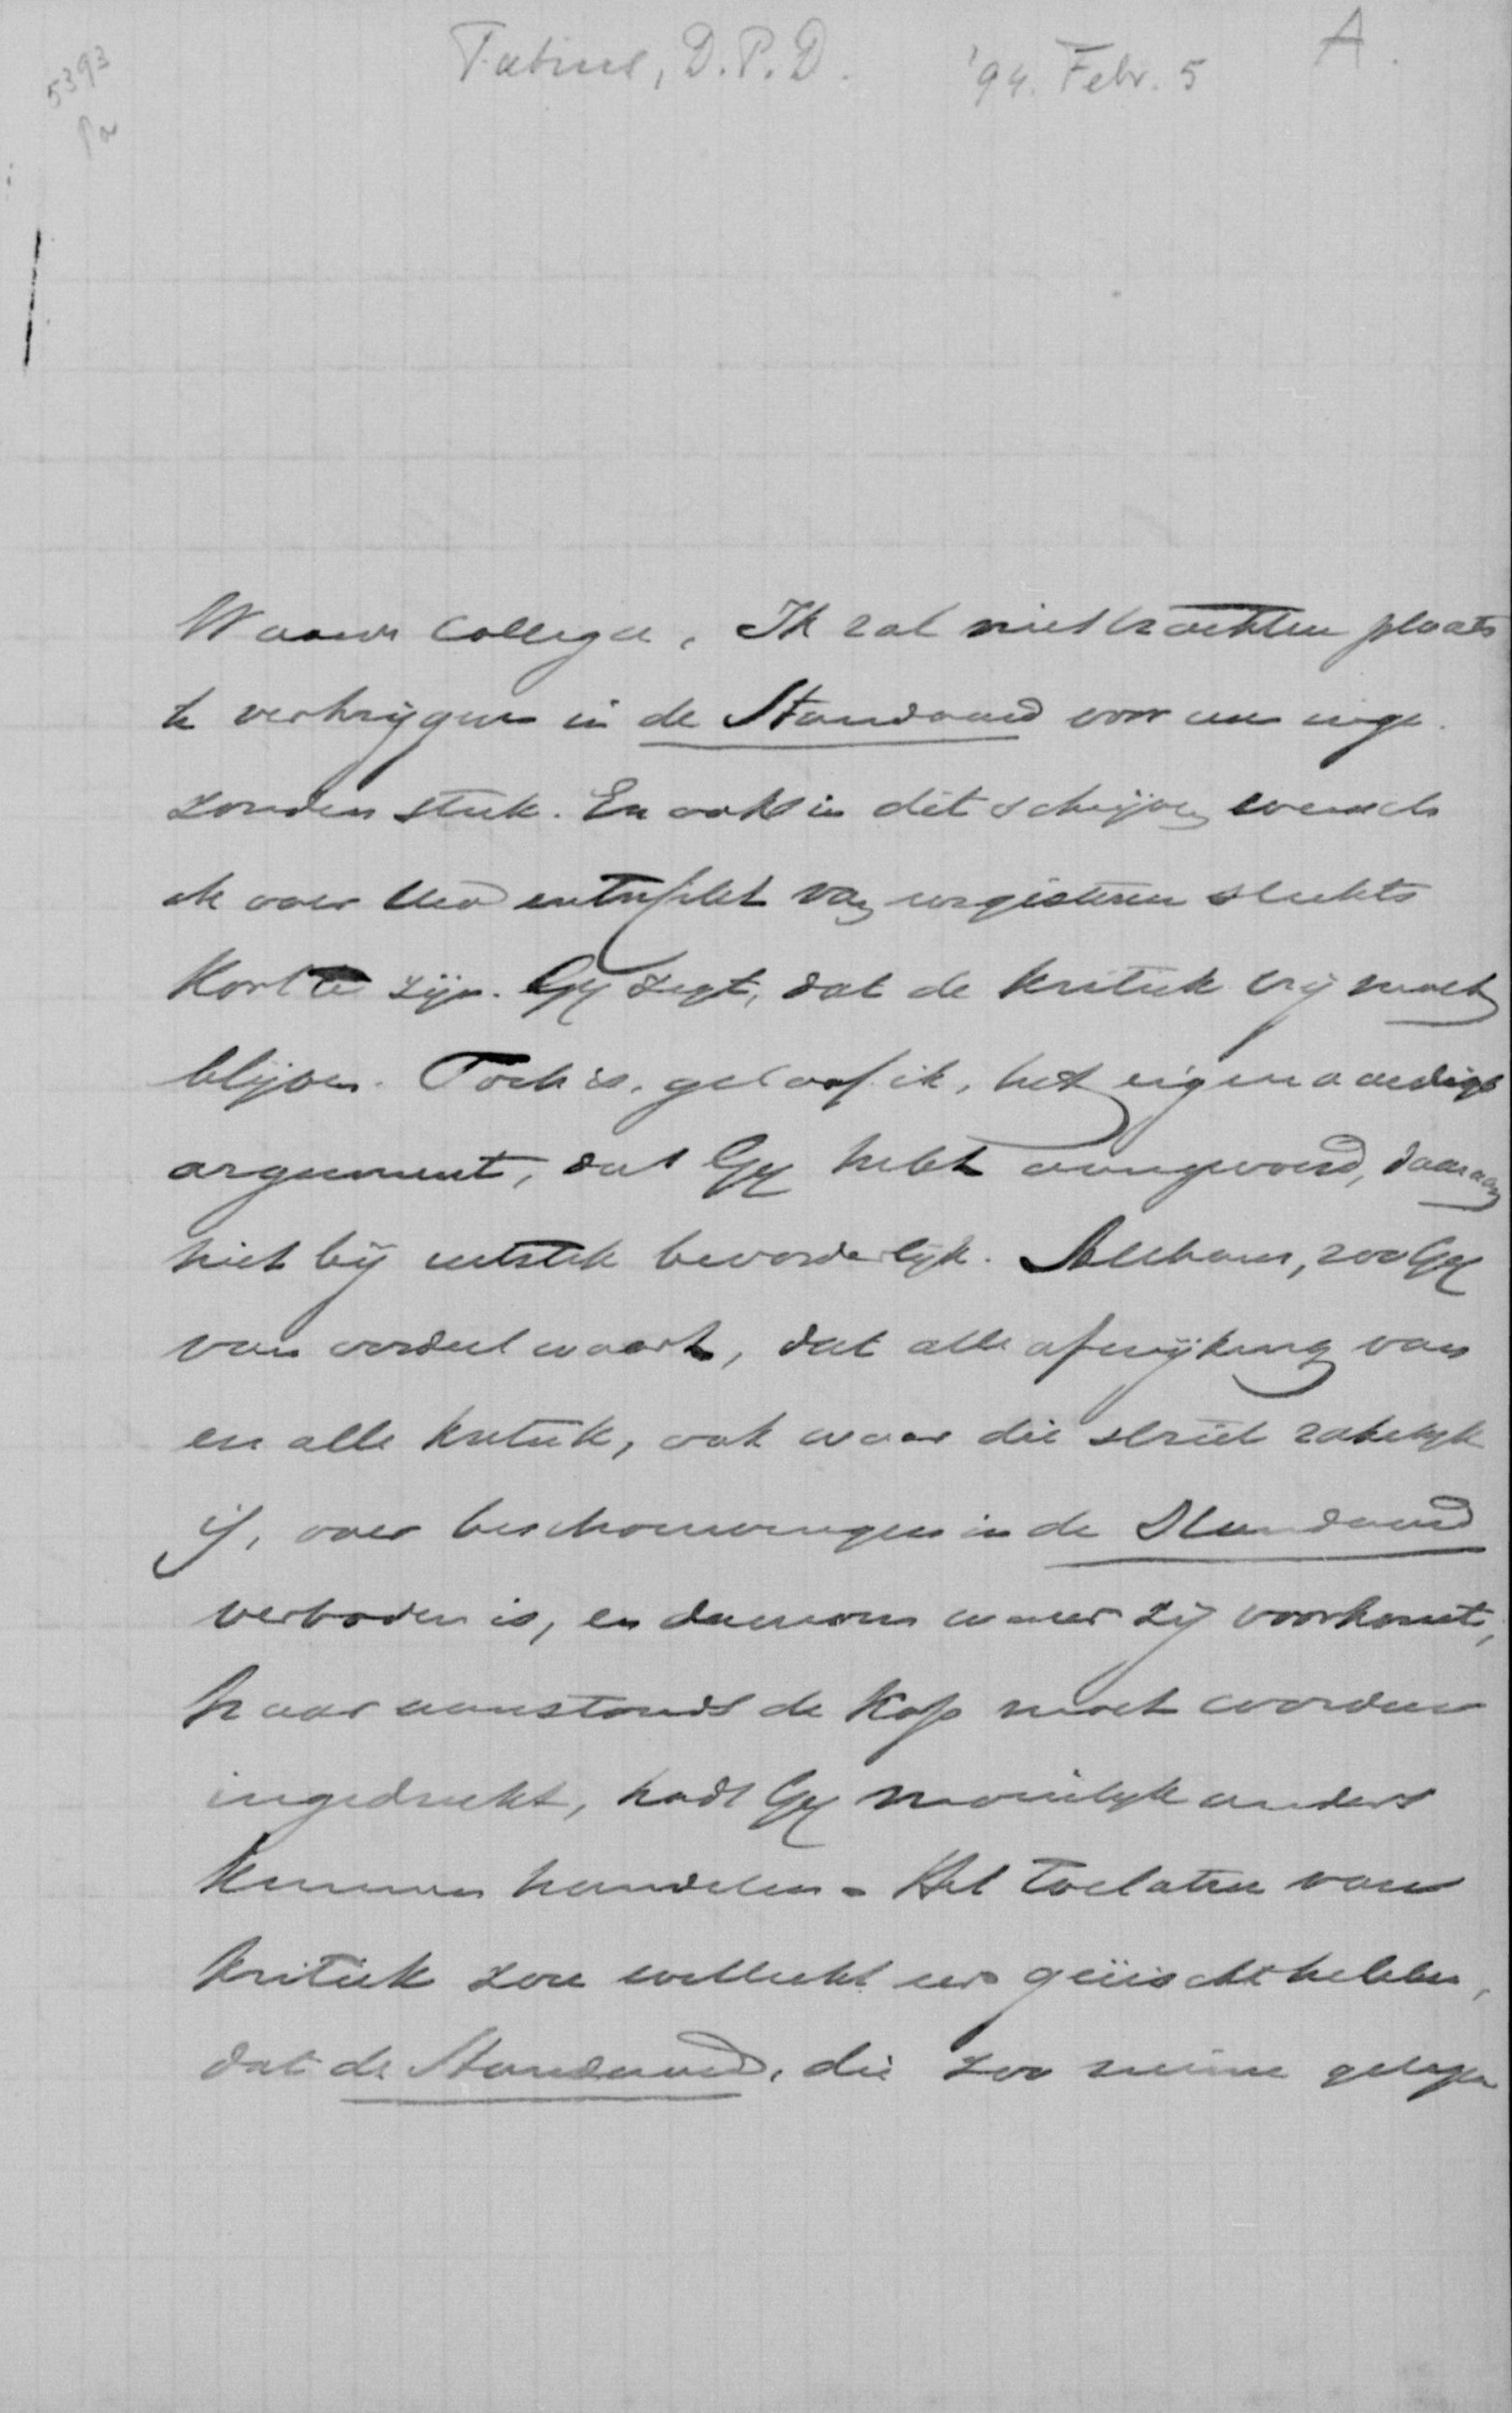 5393
Pa
Fabius, D.P.D. '94. Febr. 5 A.
Waarde Collega, Ik zal niet trachten plaats
te verkrijgen in de Standaard voor een inge-
zonden stuk. En ook in dit schrijven wensch
ik over Uw entrefilet van eergisteren slechts
kort te zijn. Gij zegt, dat de kritiek vrij moet
blijven. Toch is, geloof ik, het eigenaardige
argument, dat Gij hebt aangevoerd, daaraan
niet bij uitstek bevorderlijk. Althans, zoo Gij
van oordeel waart, dat alle afwijking van
en alle kritiek, ook waar die strict zakelijk
is, over beschouwingen in de Standaard
verboden is, en daarom waar zij voorkomt,
haar aanstonds de kop moet worden
ingedrukt, hadt Gij moeilijk anders
kunnen handelen. Het toelaten van
kritiek zou wellicht eer geëischt hebben,
dat de Standaard, die zoo ruime gelegen